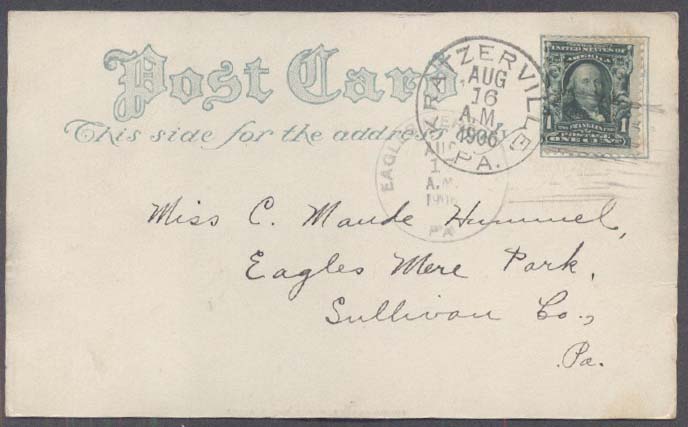 Post Card
This side for the address only
KRATZERVILLE
AUG
16
A.M.
1906
PA.
EAGLES MERE
AUG
A.M.
1906
PA
UNITED STATES OF
AMERICA
1 1
ONE CENT
Miss C. Maude Hummel,
Eagles Mere Park,
Sullivan Co.,
Pa.